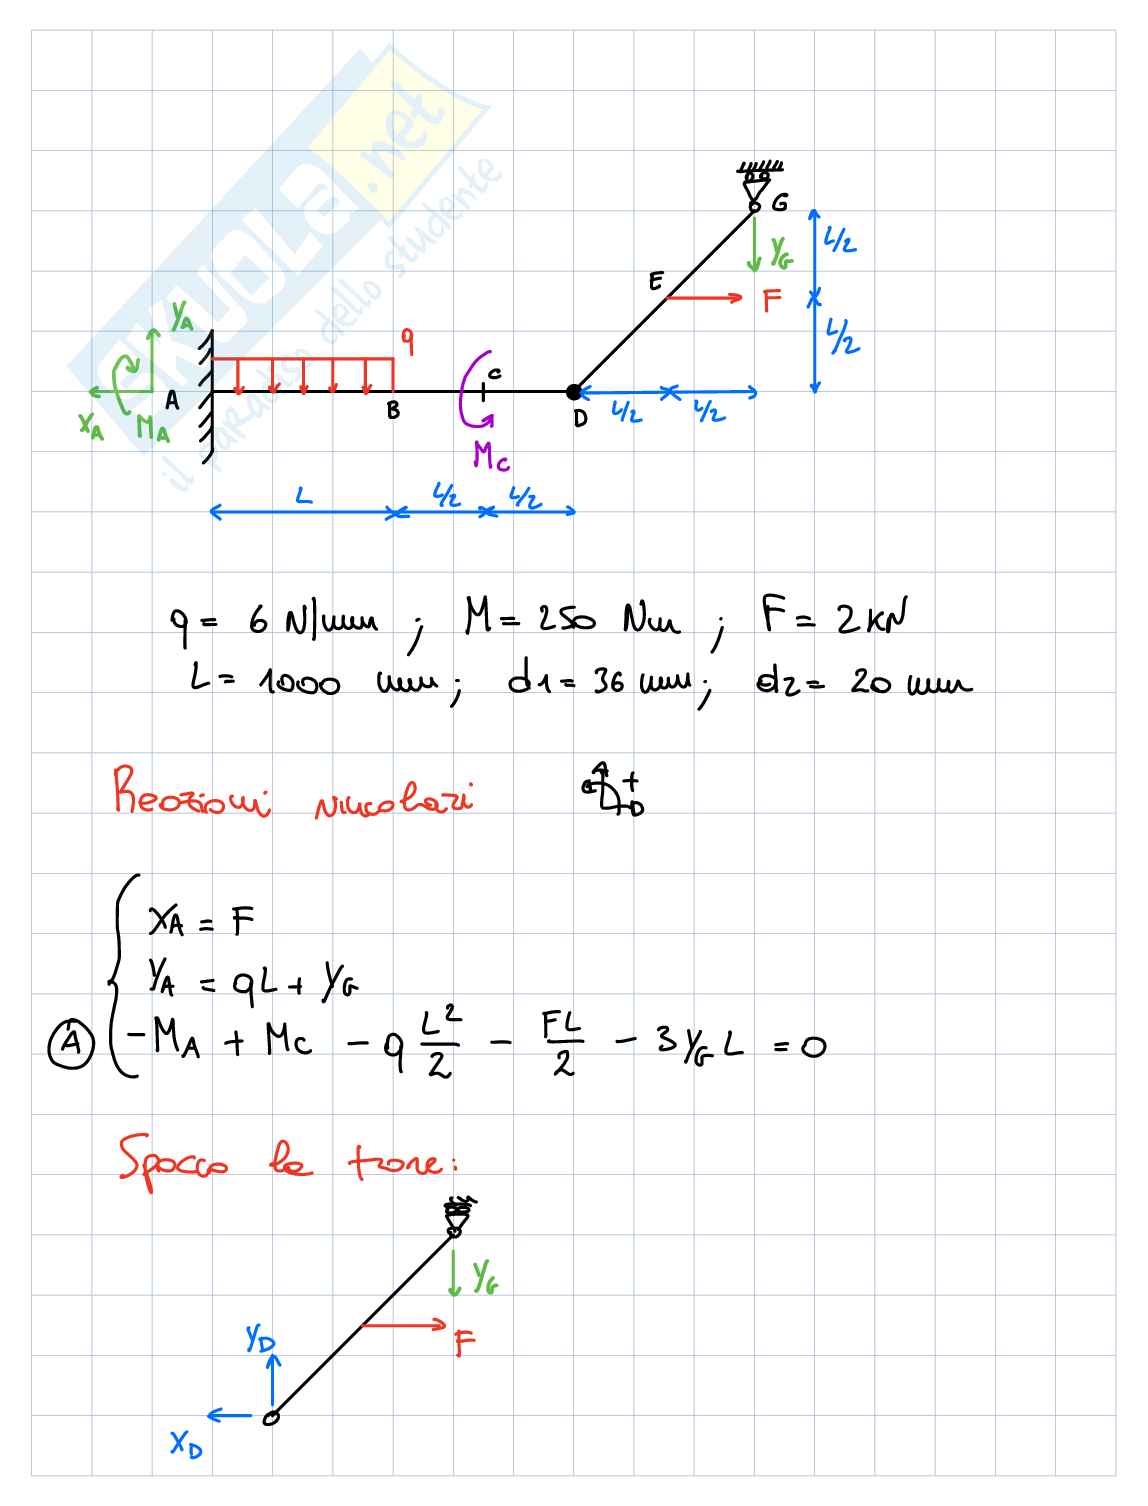 SKUOLA.net
il paradiso dello studente
G
L/2
Y_G
E
F
L/2
Y_A
q
A
C
X_A
M_A
B
D
L/2
L/2
M_C
L
L/2
L/2
q = 6 N/mm ; M = 250 Nm ; F = 2 kN
L = 1000 mm ; d1 = 36 mm ; d2 = 20 mm
Reazioni vincolari
+
X_A = F
Y_A = qL + Y_G
A) - M_A + M_C - q L²/2 - FL/2 - 3 Y_G L = 0
Spacco le trave:
Y_G
Y_D
F
X_D